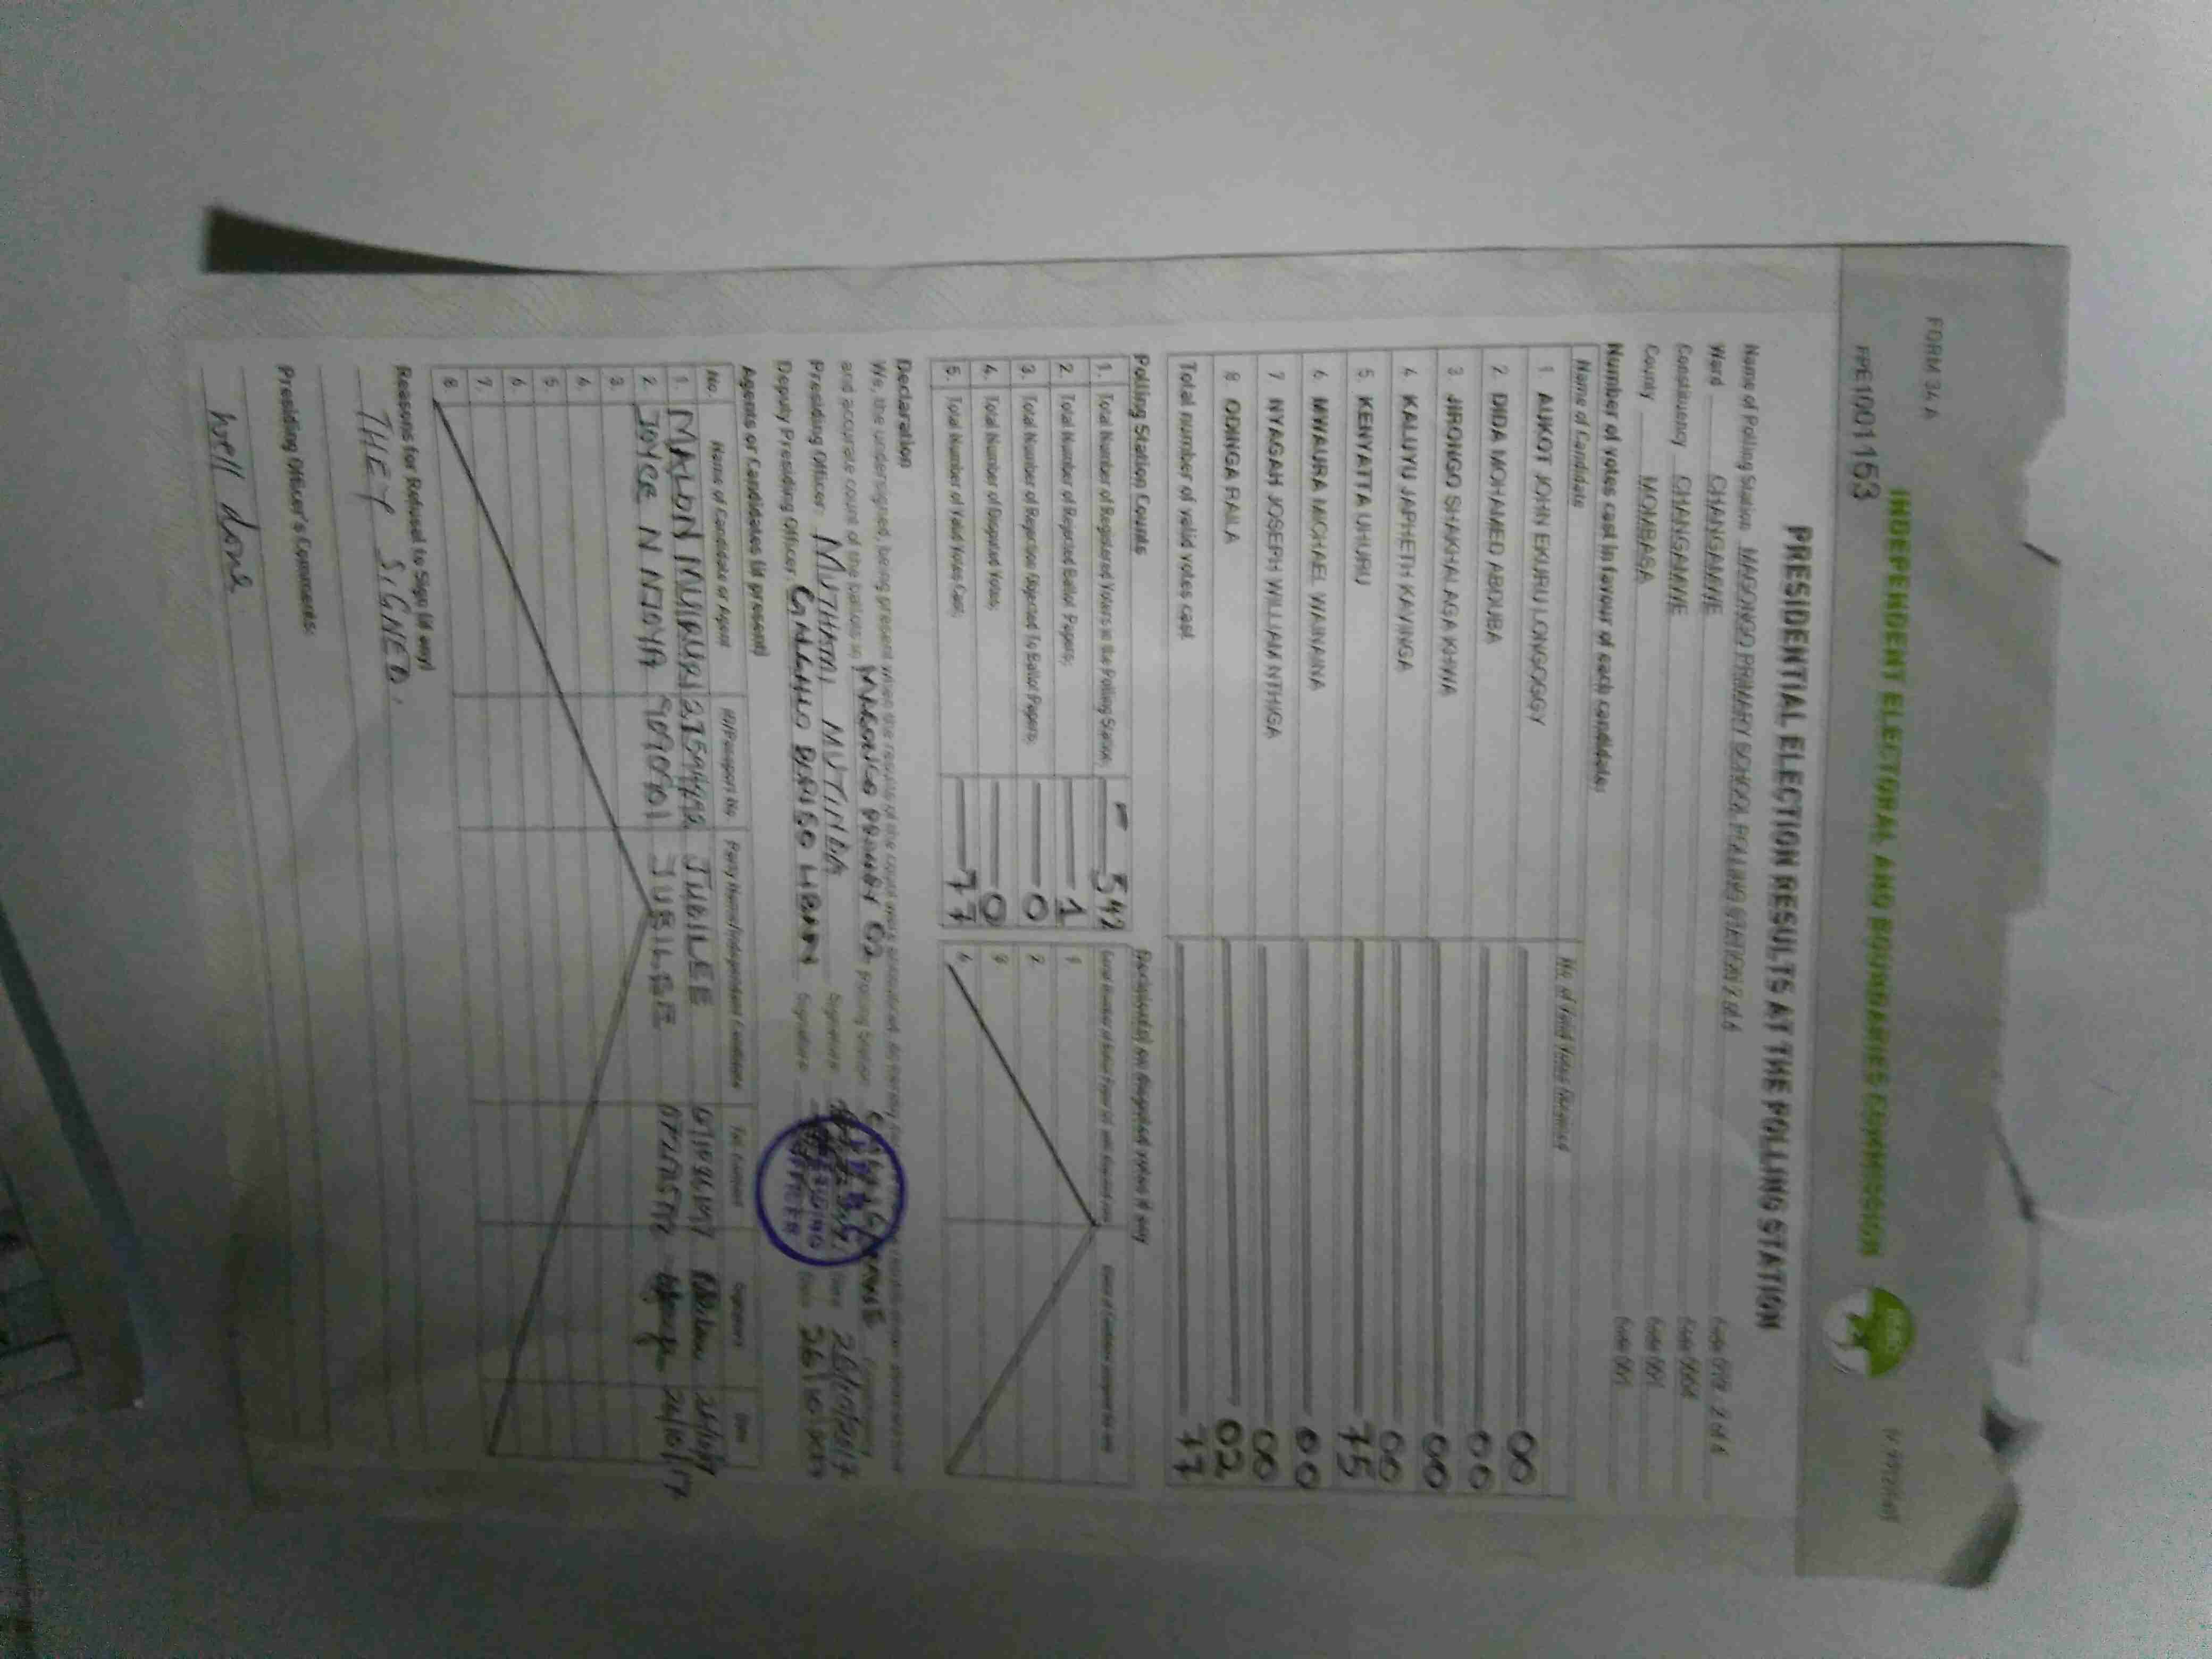 FORM 34 A
INDEPENDENT ELECTORAL AND BOUNDARIES COMMISSION
PRE1001153
PRESIDENTIAL ELECTION RESULTS AT THE POLLING STATION
Name of Polling Station MAGONGO PRIMARY SCHOOL POLLING STATION 2 of 6
Ward CHANGAMWE
Constituency CHANGAMWE
County MOMBASA Code 001
Number of votes cast in favour of each candidate: Code 001
Name of Candidate No. of Valid Votes Obtained
1. AUKOT JOHN EKURU LONGOGGY 00
2. DIDA MOHAMED ABDUBA 00
3. JIRONGO SHAKHALAGA KHWA 00
4. KALUYU JAPHETH KAVINGA 00
5. KENYATTA UHURU 75
6. MWAURA MICHAEL WAINAINA 00
7. NYAGAH JOSEPH WILLIAM NTHIGA 00
8. ODINGA RAILA 02
Total number of valid votes cast 77
Polling Station Counts Decision(s) on disputed votes if any
1. Total Number of Registered Voters in the Polling Station 542
2. Total Number of Rejected Ballot Papers; 1 1
3. Total Number of Rejection Objected To Ballot Papers; 0 2
4. Total Number of Disputed Votes; 0 3
5. Total Number of Valid Votes Cast; 77 4
Declaration
We, the undersigned, being present when the results of the count were announced, do hereby
and accurate count of the ballots in MAGONGO PRIMARY Polling Station CHANGAMWE Constituency
Presiding Officer: MUTHAMI MUTINDA Signature Date 26/10/2017
Deputy Presiding Officer: Signature Date 26/10/2017
PRESIDING OFFICER
Agents or Candidates (if present)
No. Name of Candidate or Agent ID/Passport No. Party Name/Independent Candidate Tel. Contact Signature Date
1. JUBILEE
2. JOYCE N NJOYA 9090901 JUBILEE 26/10/17
3.
4.
5.
6.
7.
8.
Reasons for Refusal to Sign (if any)
THEY SIGNED.
Presiding Officer's Comments:
Well done